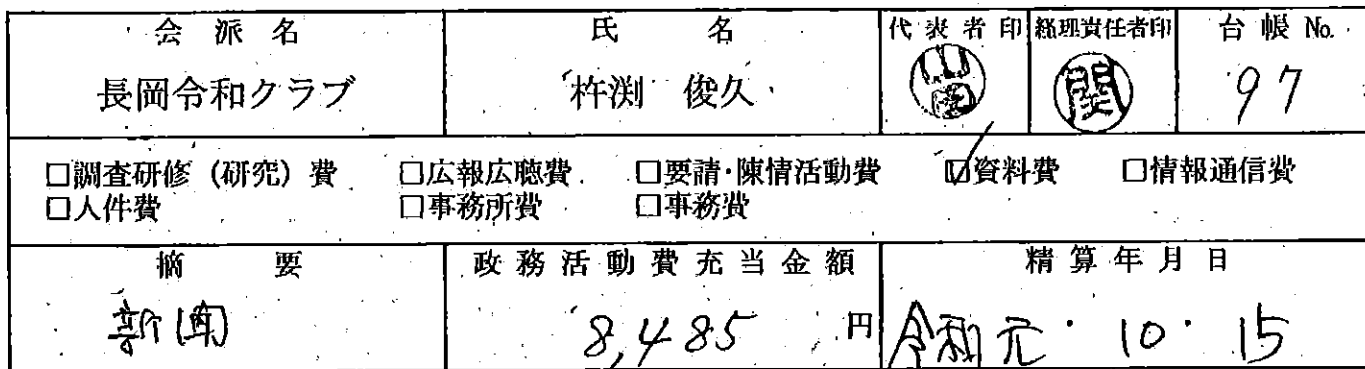 会派名 氏名 代表者印 経理責任者印 台帳No.
長岡令和クラブ 杵渕 俊久 関 97
□調査研修（研究）費 □広報広聴費 □要請・陳情活動費 ☑資料費 □情報通信費
□人件費 □事務所費 □事務費
摘要 政務活動費充当金額 精算年月日
新聞 8,485円 令和元・10・15